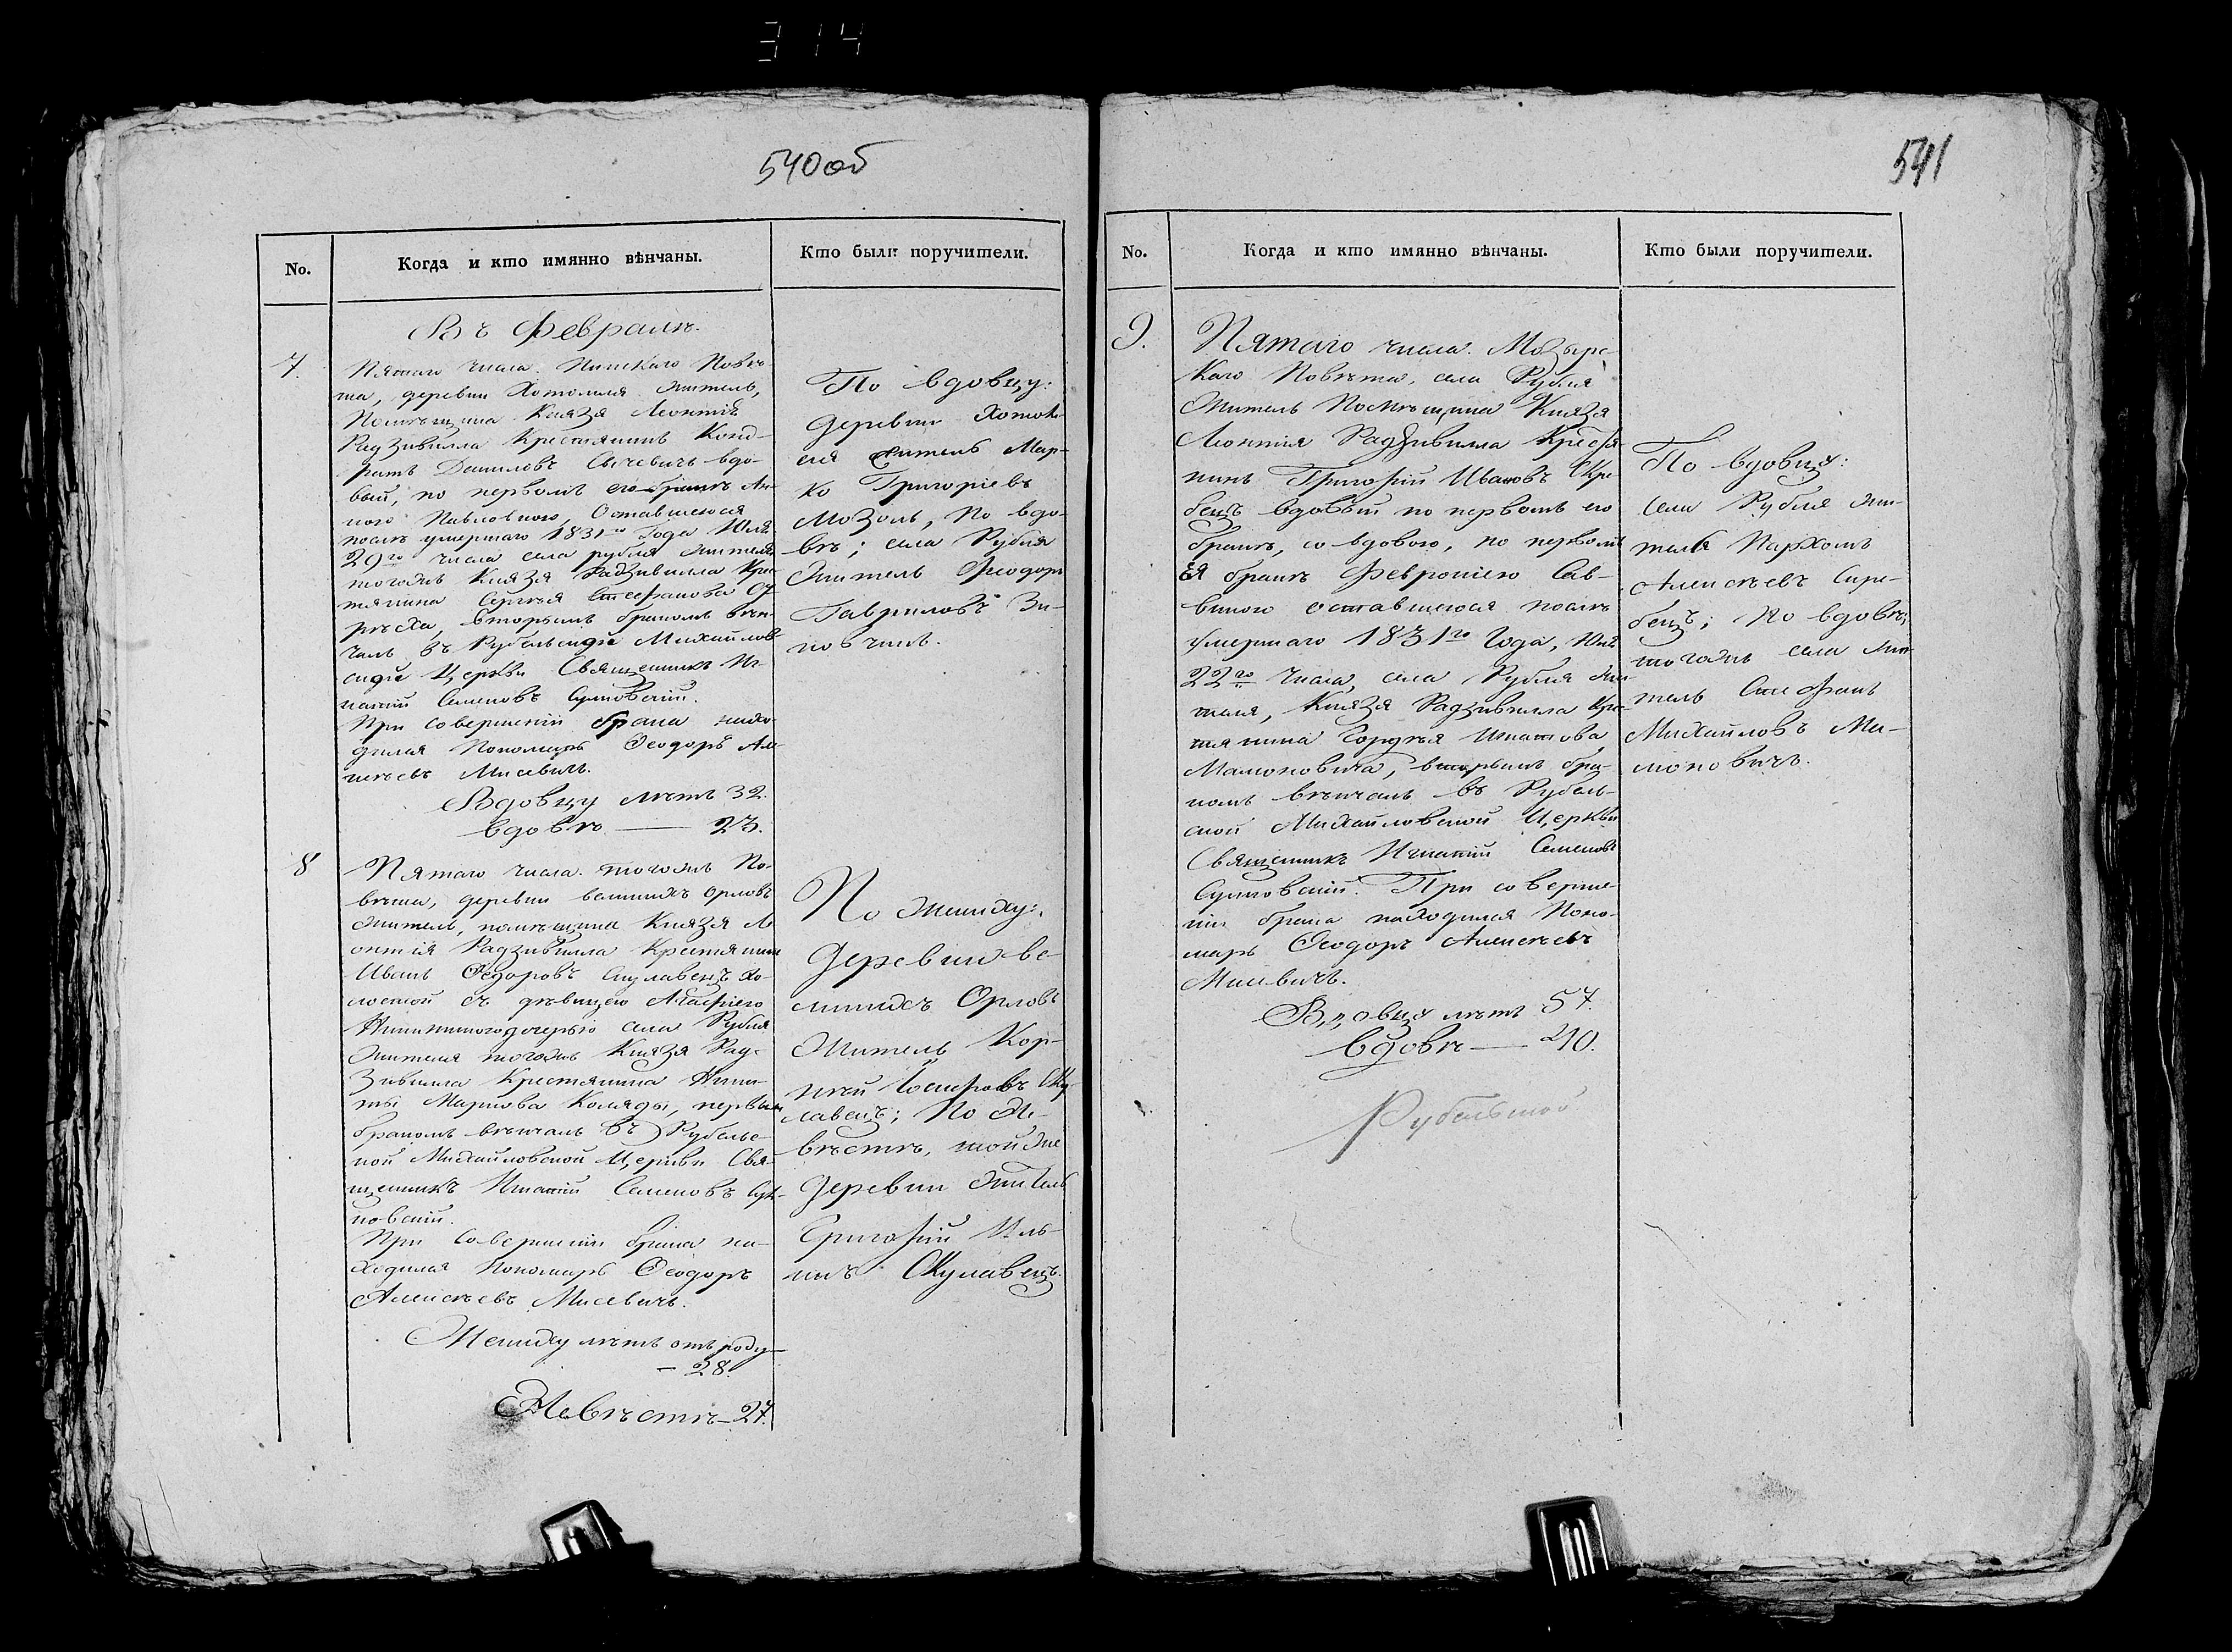 314
540 об
No.
Когда и кто имянно вѣнчаны.
Кто были поручители.
Въ Февралѣ.
7.
Пятаго числа. Пинскаго Повѣ-
та, деревни Хотомля житель,
Помѣщика Князя Леонтія
Радзивилла Крестянинъ Конд-
ратъ Даниловъ Сычевичъ вдо-
вый, по первомъ его бракѣ Ан-
ною Павловною, Оставшеюся
послѣ умершаго 1831го Года Юля
29го числа села рубля жителя
тогожъ Князя Радзивилла Кре-
тянина Сергѣя Стефанова
вторымъ бракомъ вѣн-
чалъ въ Рубельской Михайлов-
ской Церкви Священникъ Иг-
натій Семеновъ Сулковскій.
При совершеніи брака нахо-
дился Пономарь Ѳеодоръ Але-
ксѣевъ Мисевичъ.
Вдовцу лѣтъ 32.
вдовѣ — 23.
По вдовцу:
деревни Хотом-
ля житель Мар-
ко Григоріевъ
Мозоль, по вдо-
вѣ; села Рубля
Житель Ѳеодоръ
Гавриловъ Зи-
новчикъ.
8
Пятаго числа. тогожъ По-
вѣта, деревни великихъ Орловъ
житель, помѣщика Князя Ле-
онтія Радзивилла Крестянинъ
Иванъ Ѳедоровъ Скулавецъ хо-
лостой съ дѣвицею Агафіею
Никитиною дочерью села Рубля
Жителя тогожъ Князя Рад-
зивилла Крестянина Ники-
ты Маркова Коляды, первымъ
бракомъ вѣнчалъ въ Рубельс-
кой Михайловской Церкви Свя-
щенникъ Игнатій Семеновъ Сул-
ковскій.
При совершеніи брака на-
ходился Пономарь Ѳеодоръ
Алексѣевъ Мисевичъ.
Жениху лѣтъ отъ роду
— 28.
Невѣстѣ — 27.
По жениху:
деревни ве-
ликихъ Орловъ
Житель Кор-
нѣй Іосифовъ Ску-
лавецъ; По Не-
вѣстѣ, той же
деревни житель
Григорій Иль-
инъ Скулавецъ.
541
No.
Когда и кто имянно вѣнчаны.
Кто были поручители.
9.
Пятаго числа. Мозырс-
каго Повѣта, села Рубля
Житель Помѣщика Князя
Леонтія Радзивилла Крестя-
нинъ Григорій Ивановъ Скре-
бецъ вдовый по первомъ его
бракѣ, со вдовою, по первомъ
ея бракѣ Февроніею Сав-
виною оставшеюся послѣ
Умершаго 1831го Года, Юля
22го числа, села Рубля жи-
теля, Князя Радзивилла Кре-
тянина Гордѣя Игнатова
Мамоновича, вторымъ бра-
комъ вѣнчалъ въ Рубель-
ской Михайловской Церкви
Священникъ Игнатій Семеновъ
Сулковскій. При соверше-
ніи брака находился Поно-
марь Ѳеодоръ Алексѣевъ
Мисевичъ.
Вдовцу лѣтъ 57.
вдовѣ — 40.
По вдовцу:
Села Рубля жи-
тель Пархомъ
Алексѣевъ Скре-
бецъ; По вдовѣ;
тогожъ села жи-
тель Стефанъ
Михайловъ Ма-
моновичъ.
Рубельской